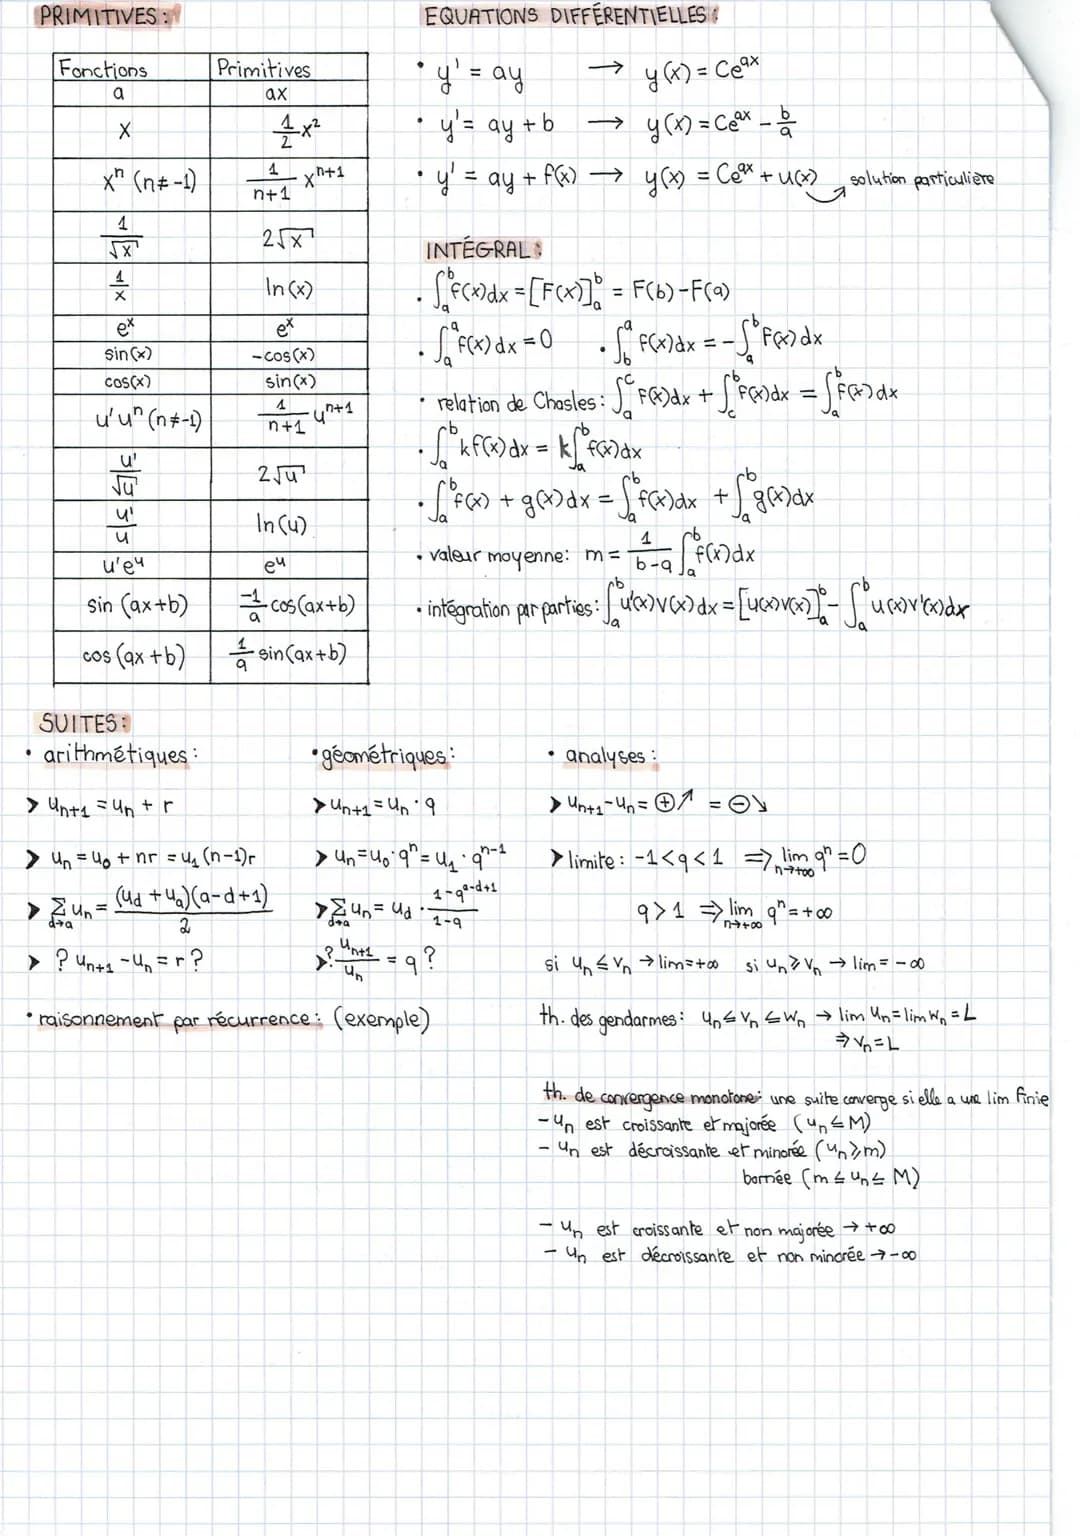 PRIMITIVES :
Fonctions | Primitives
a | ax
x | 1/2 x²
xⁿ (n≠-1) | 1/(n+1) xⁿ⁺¹
1/√x | 2√x
1/x | ln(x)
eˣ | eˣ
sin(x) | -cos(x)
cos(x) | sin(x)
u'uⁿ (n≠-1) | 1/(n+1) uⁿ⁺¹
u'/√u | 2√u
u'/u | ln(u)
u'eᵘ | eᵘ
sin (ax+b) | -1/a cos(ax+b)
cos (ax+b) | 1/a sin(ax+b)
EQUATIONS DIFFÉRENTIELLES :
• y' = ay → y(x) = Ceᵃˣ
• y' = ay + b → y(x) = Ceᵃˣ - b/a
• y' = ay + f(x) → y(x) = Ceᵃˣ + u(x) → solution particulière
INTÉGRAL :
• ∫ₐᵇ f(x)dx = [F(x)]ₐᵇ = F(b)-F(a)
• ∫ₐᵃ f(x)dx = 0 • ∫_b^a f(x)dx = -∫ₐᵇ f(x)dx
• relation de Chasles : ∫ₐᶜ f(x)dx + ∫_c^b f(x)dx = ∫ₐᵇ f(x)dx
• ∫ₐᵇ kf(x)dx = k∫ₐᵇ f(x)dx
• ∫ₐᵇ f(x) + g(x)dx = ∫ₐᵇ f(x)dx + ∫ₐᵇ g(x)dx
• valeur moyenne : m = 1/(b-a) ∫ₐᵇ f(x)dx
• intégration par parties : ∫ₐᵇ u'(x)v(x)dx = [u(x)v(x)]ₐᵇ - ∫ₐᵇ u(x)v'(x)dx
SUITES :
• arithmétiques :
➤ uₙ₊₁ = uₙ + r
➤ uₙ = u₀ + nr = u₁ (n-1)r
➤ Σ_{d→a} uₙ = (u_d + u_a)(a-d+1)/2
➤ ? uₙ₊₁ - uₙ = r ?
• géométriques :
➤ uₙ₊₁ = uₙ · q
➤ uₙ = u₀ · qⁿ = u₁ · qⁿ⁻¹
➤ Σ_{d→a} uₙ = u_d · (1-q^{a-d+1})/(1-q)
➤ ? uₙ₊₁/uₙ = q ?
• raisonnement par récurrence : (exemple)
• analyses :
➤ uₙ₊₁ - uₙ = ⊕ ↗ = ⊖ ↘
➤ limite : -1 < q < 1 ⇒ lim_{n→+∞} qⁿ = 0
q > 1 ⇒ lim_{n→+∞} qⁿ = +∞
si uₙ ≤ vₙ → lim = +∞ si uₙ ≥ vₙ → lim = -∞
th. des gendarmes : uₙ ≤ vₙ ≤ wₙ → lim uₙ = lim wₙ = L
⇒ vₙ = L
th. de convergence monotone : une suite converge si elle a une lim finie
- uₙ est croissante et majorée (uₙ ≤ M)
- uₙ est décroissante et minorée (uₙ ≥ m)
bornée (m ≤ uₙ ≤ M)
- uₙ est croissante et non majorée → +∞
- uₙ est décroissante et non minorée → -∞